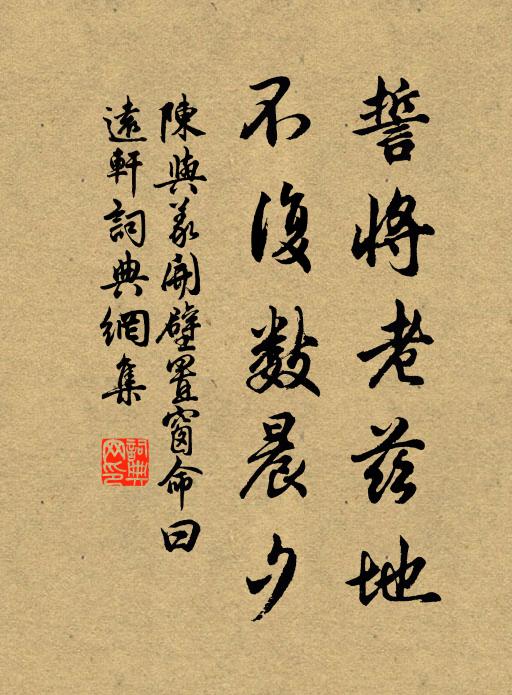 誓將老茲地
不復數晨夕
陳與義開壁置窗命曰
遠軒詞典網集
詞典
网印